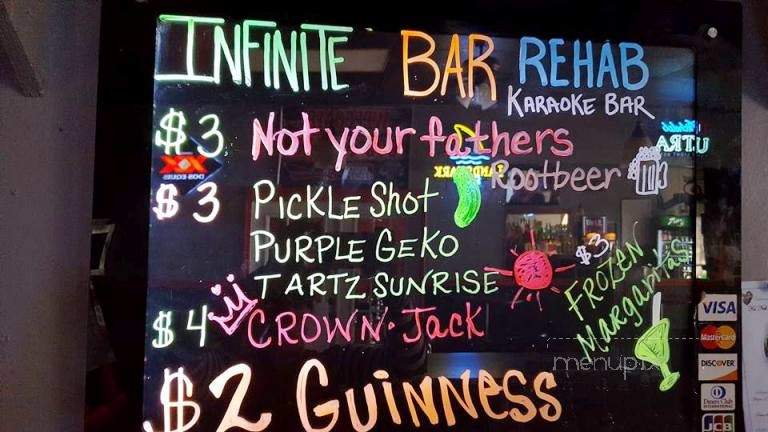 INFINITE BAR REHAB
KARAOKE BAR
$3 Not your fathers
Rootbeer
$3 PICKLE SHot
PURPLE GEKO
TARTZ SUNRISE
$3
FROZEN
MargaritaS
$4 CROWN·Jack
$2 GUiNNESS
XX
DOS EQUIS
ULTRA
LANDSHARK
VISA
MasterCard
DISCOVER
Diners Club
INTERNATIONAL
JCB
menupix